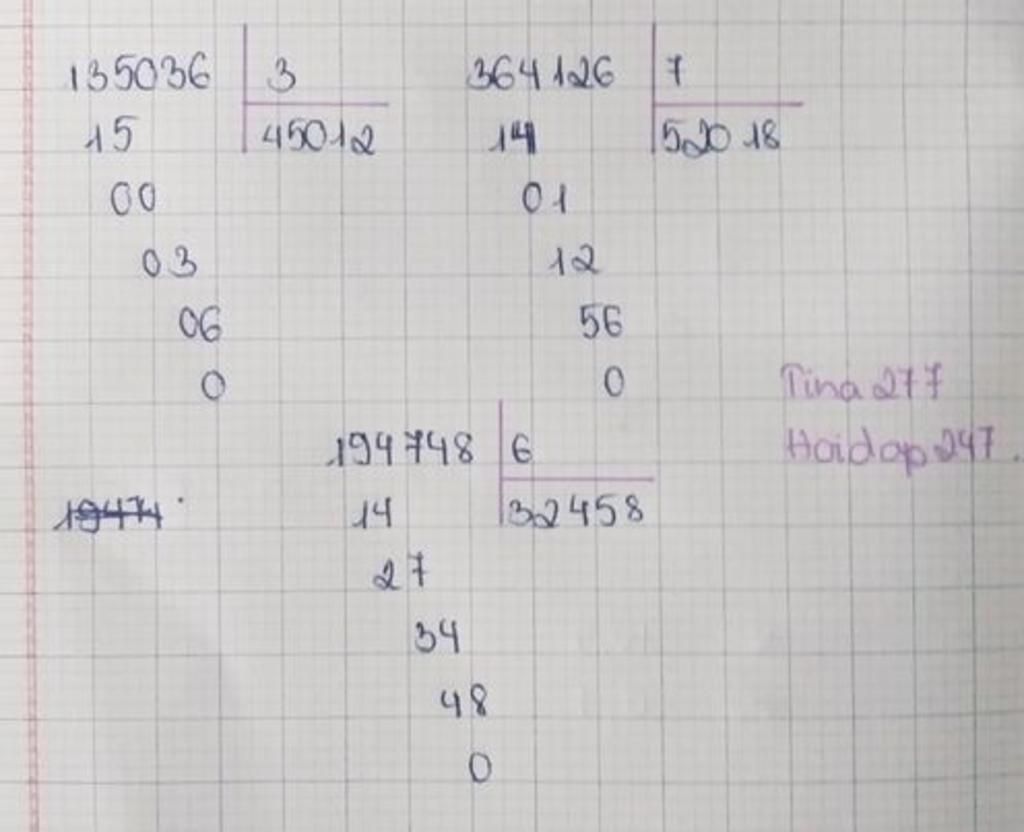 135036 3
15 45012
00
03
06
0
364126 7
14 52018
01
12
56
0
194748 6
14 32458
27
34
48
0
19474
Tina277
Hoidap247.